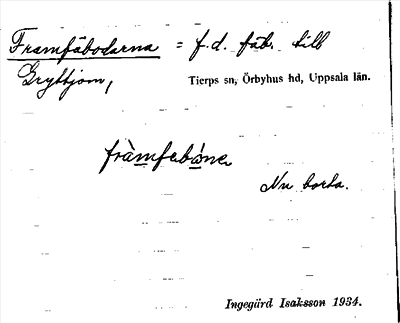 Framfäbodarna = f.d. fäb. till
Gryttjom, Tierps sn, Örbyhus hd, Uppsala län.
främfebòne
Nu borta.
Ingegärd Isaksson 1934.